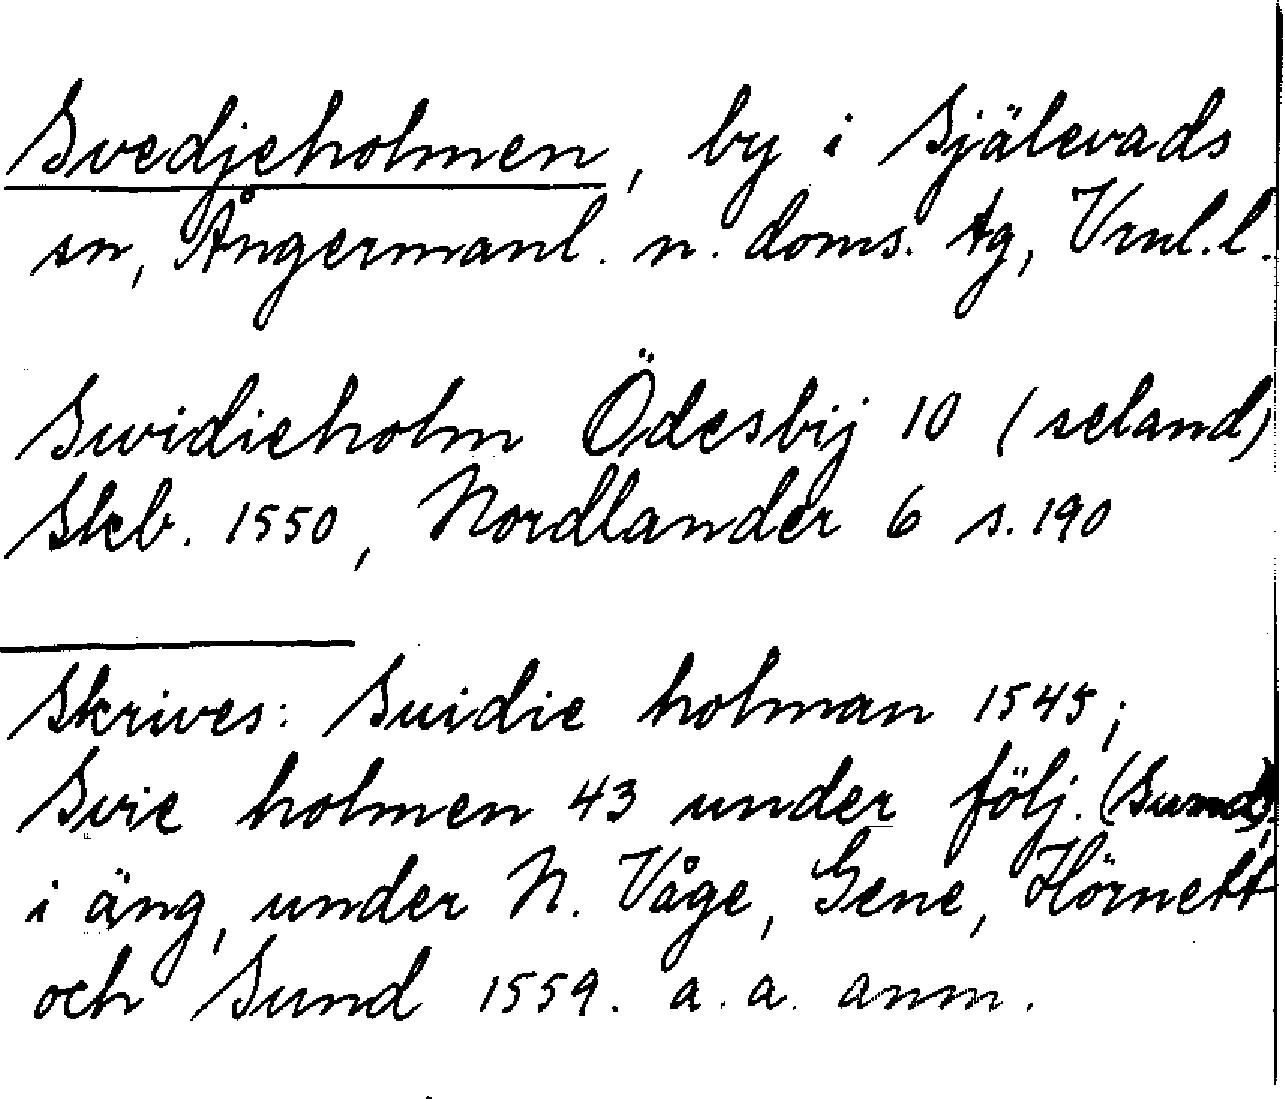 Svedjeholmen, by i Själevads
sn, Ångermanl. n. doms. tg, Vrnl.l.
Swidieholm Ödesbij 10 (seland)
Skb. 1550, Nordlander 6 s. 190
Skrives: Suidie holman 1545;
Svie holmen 43 under följ. (Sund),
i äng, under N. Våge, Gene, Hörnett
och Sund 1559. a. a. anm.